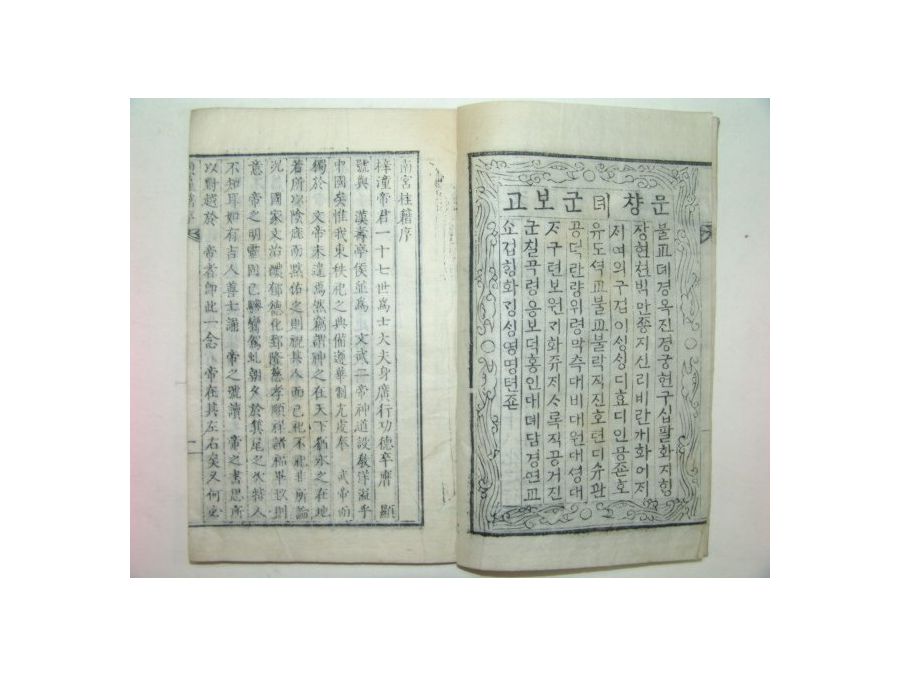 문챵뎨군보고
불교뎨경옥진경궁현구십팔화지형
장현쳔박만죵지신리비란개화어지
셔역의구겁이싱싱디효디인용죤호
유도셕교불교불락직진호련디슈관
공덕란량위령막측대비대원대셩대
져구련보원개화쥬져소록직공거진
군칠곡령응보덕홍인대뎨담경연교
쇼겁힝화징싱영명텬죤
南宮桂籍序
梓潼帝君一十七世爲士大夫身廣行功德卒膺 顯
號與 漢壽亭侯並爲 文武二帝神道設敎洋溢乎
中國矣惟我東秩祀之典備遵華制尤虔奉 武帝而
獨於 文帝未遑焉然竊謂神之在天下猶水之在地
若所以陰庇而默佑之則視其人而已祀不祀非所論
況 國家文治醲郁德化郅隆慈孝順祥諸福畢致則
意 帝之明靈固已驂鸞駕虬朝夕於箕尾之次特人
不知耳如有吉人善士誦 帝之號讀 帝之書思所
以對越於 帝者卽此一念 帝在其左右矣又何必